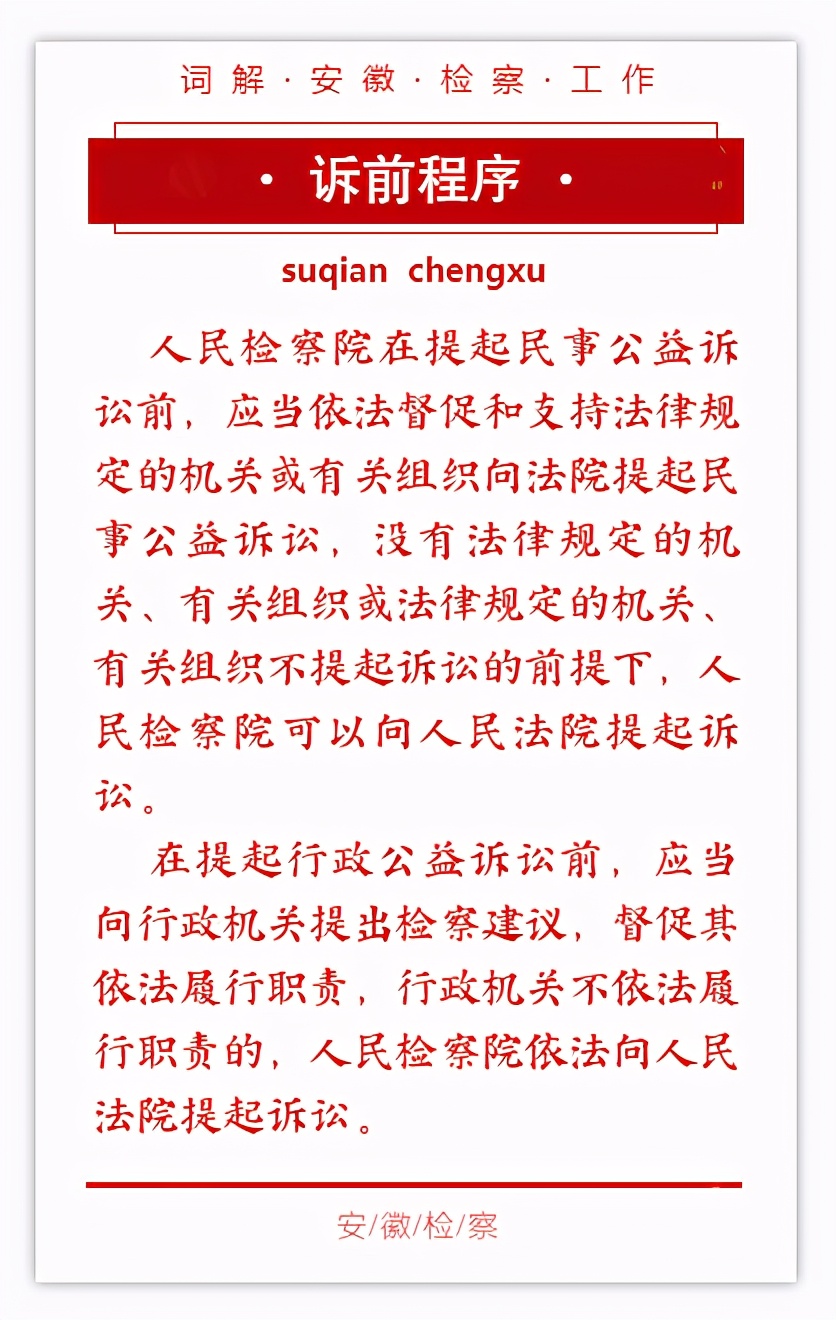 词解·安徽·检察·工作
· 诉前程序 ·
suqian chengxu
人民检察院在提起民事公益诉
讼前，应当依法督促和支持法律规
定的机关或有关组织向法院提起民
事公益诉讼，没有法律规定的机
关、有关组织或法律规定的机关、
有关组织不提起诉讼的前提下，人
民检察院可以向人民法院提起诉
讼。
在提起行政公益诉讼前，应当
向行政机关提出检察建议，督促其
依法履行职责，行政机关不依法履
行职责的，人民检察院依法向人民
法院提起诉讼。
安/徽/检/察